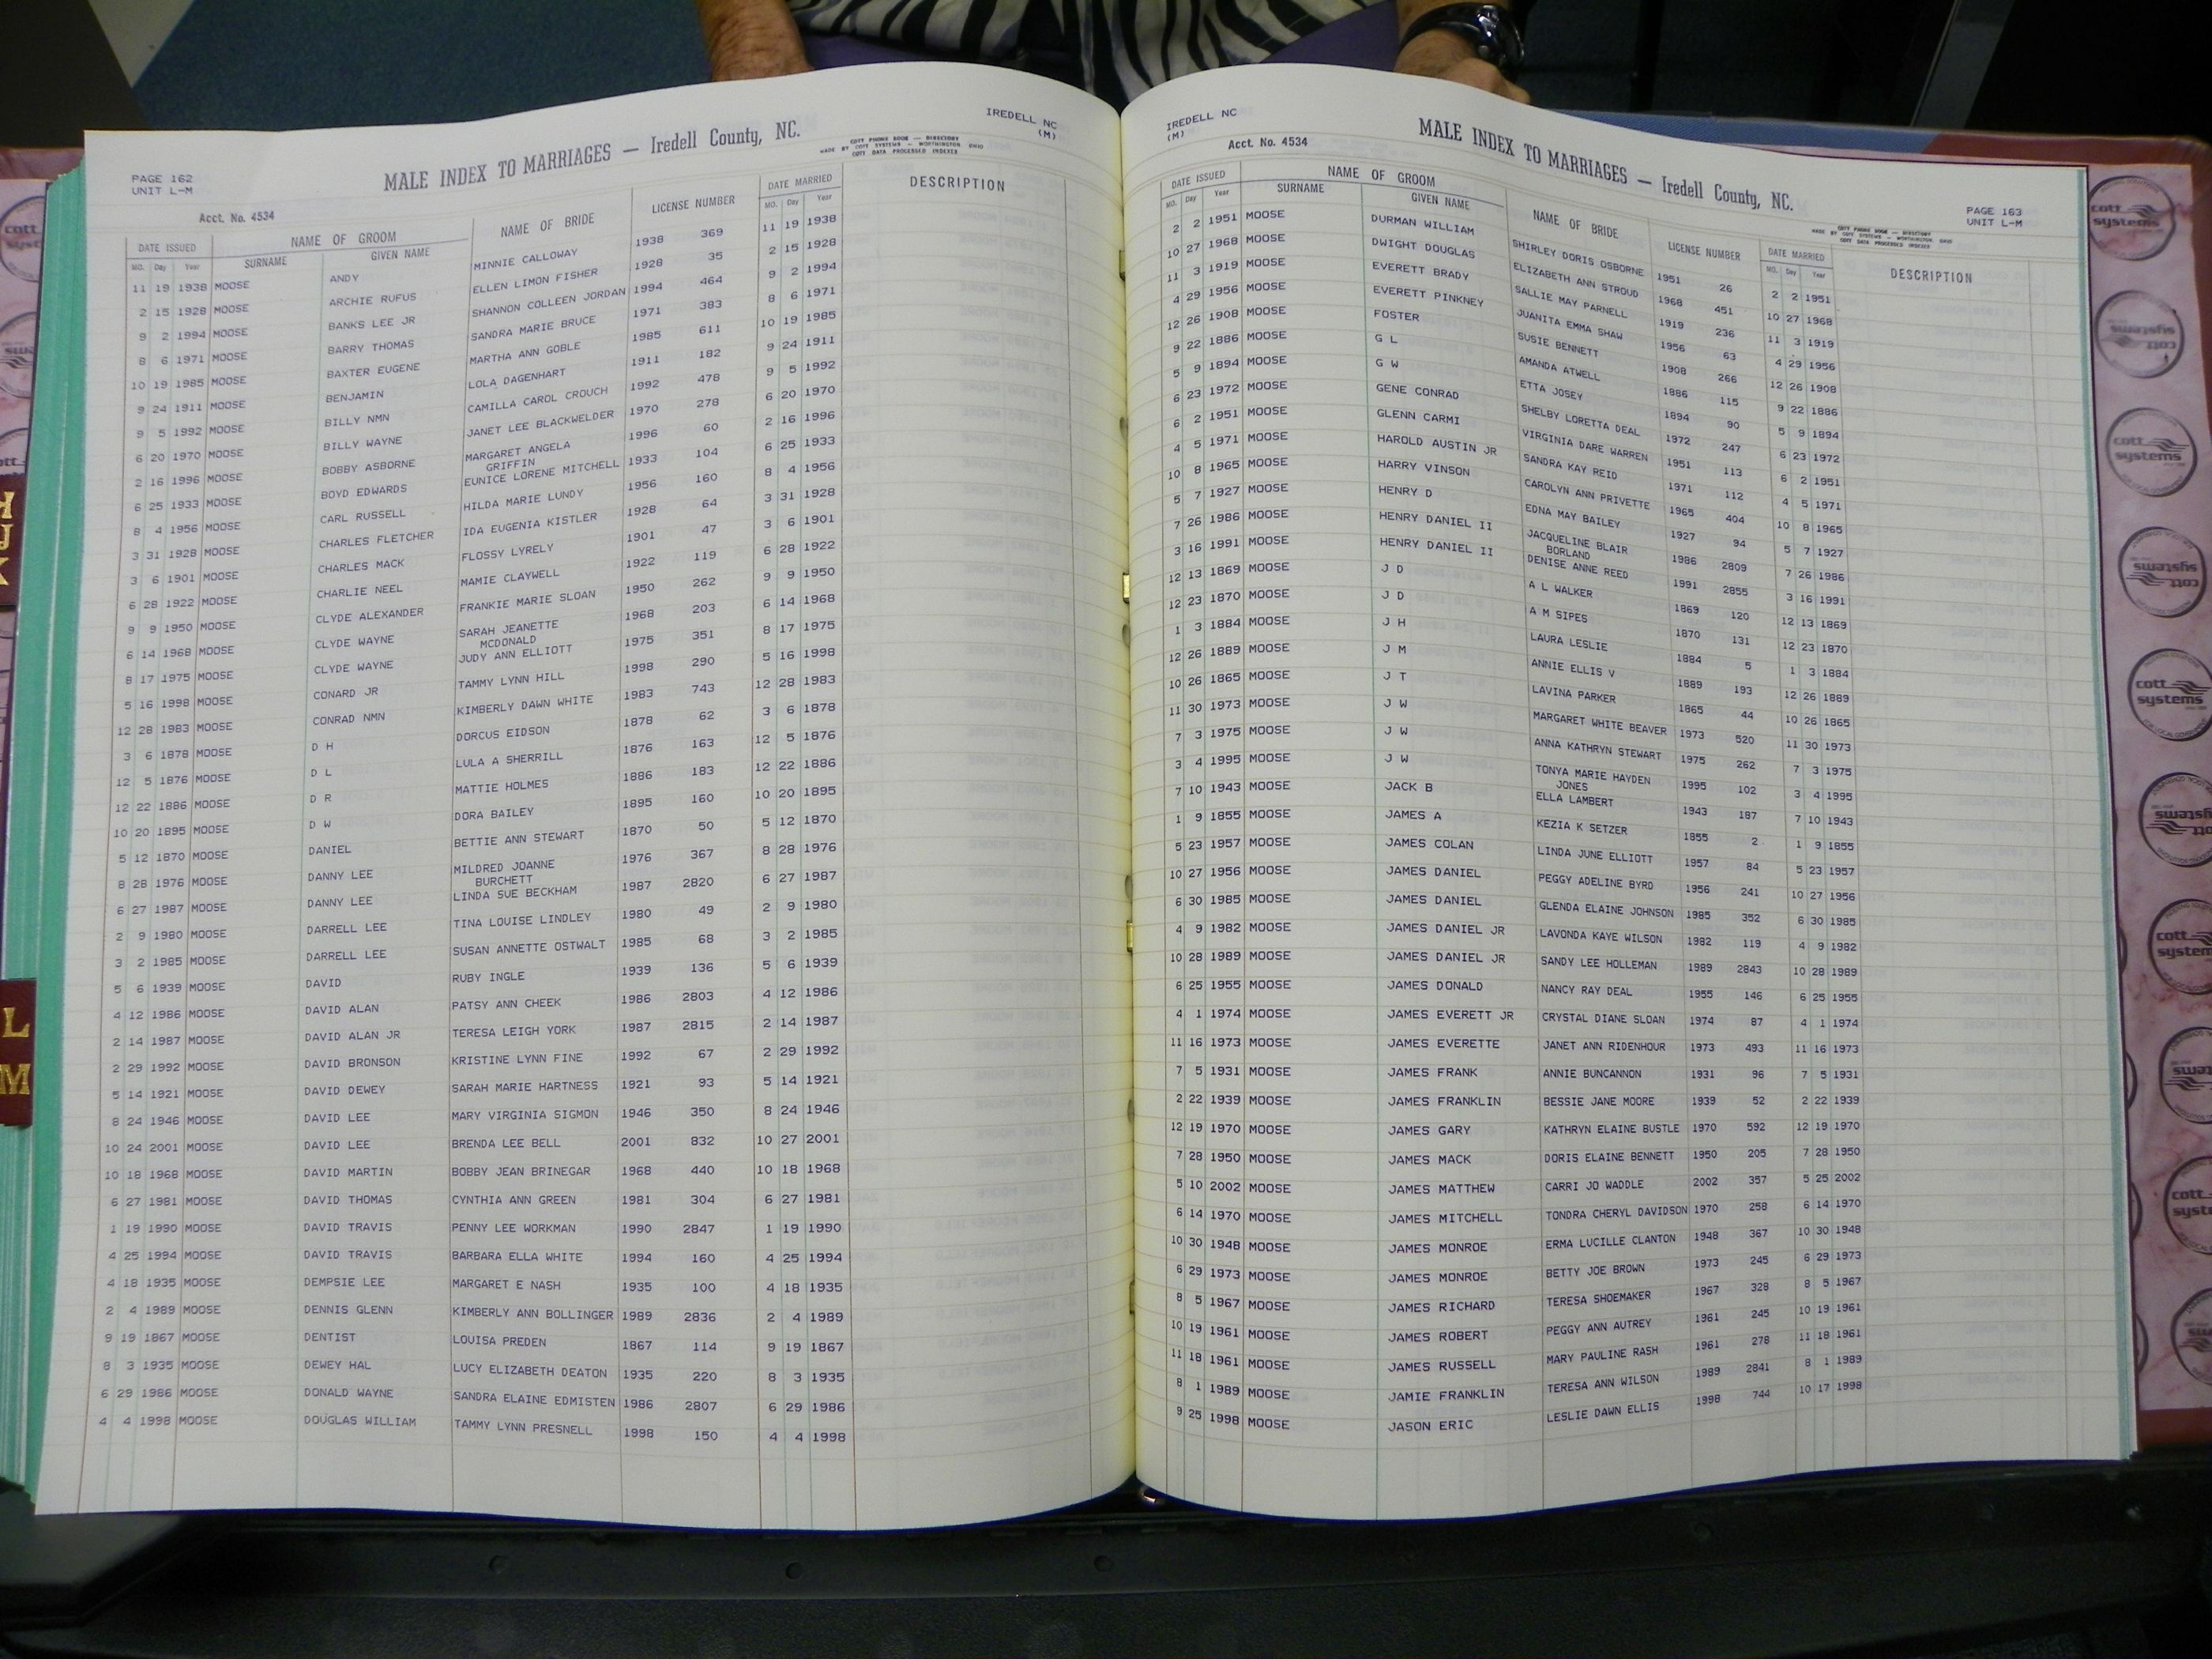 IREDELL NC
(M)
MALE INDEX TO MARRIAGES — Iredell County, NC.
COTT PHONE BOOK — DIRECTORY
MADE BY COTT SYSTEMS — WORTHINGTON OHIO
COTT DATA PROCESSED INDEXES
PAGE 162
UNIT L-M
Acct. No. 4534
DATE ISSUED NAME OF GROOM NAME OF BRIDE LICENSE NUMBER DATE MARRIED DESCRIPTION
MO. Day Year SURNAME GIVEN NAME MO. Day Year
11 19 1938 MOOSE ANDY MINNIE CALLOWAY 1938 369 11 19 1938
2 15 1928 MOOSE ARCHIE RUFUS ELLEN LIMON FISHER 1928 35 2 15 1928
9 2 1994 MOOSE BANKS LEE JR SHANNON COLLEEN JORDAN 1994 464 9 2 1994
8 6 1971 MOOSE BARRY THOMAS SANDRA MARIE BRUCE 1971 383 8 6 1971
10 19 1985 MOOSE BAXTER EUGENE MARTHA ANN GOBLE 1985 611 10 19 1985
9 24 1911 MOOSE BENJAMIN LOLA DAGENHART 1911 182 9 24 1911
9 5 1992 MOOSE BILLY NMN CAMILLA CAROL CROUCH 1992 478 9 5 1992
6 20 1970 MOOSE BILLY WAYNE JANET LEE BLACKWELDER 1970 278 6 20 1970
2 16 1996 MOOSE BOBBY ASBORNE MARGARET ANGELA 1996 60 2 16 1996
GRIFFIN
6 25 1933 MOOSE BOYD EDWARDS EUNICE LORENE MITCHELL 1933 104 6 25 1933
8 4 1956 MOOSE CARL RUSSELL HILDA MARIE LUNDY 1956 160 8 4 1956
3 31 1928 MOOSE CHARLES FLETCHER IDA EUGENIA KISTLER 1928 64 3 31 1928
3 6 1901 MOOSE CHARLES MACK FLOSSY LYRELY 1901 47 3 6 1901
6 28 1922 MOOSE CHARLIE NEEL MAMIE CLAYWELL 1922 119 6 28 1922
9 9 1950 MOOSE CLYDE ALEXANDER FRANKIE MARIE SLOAN 1950 262 9 9 1950
6 14 1968 MOOSE CLYDE WAYNE SARAH JEANETTE 1968 203 6 14 1968
MCDONALD
8 17 1975 MOOSE CLYDE WAYNE JUDY ANN ELLIOTT 1975 351 8 17 1975
5 16 1998 MOOSE CONARD JR TAMMY LYNN HILL 1998 290 5 16 1998
12 28 1983 MOOSE CONRAD NMN KIMBERLY DAWN WHITE 1983 743 12 28 1983
3 6 1878 MOOSE D H DORCUS EIDSON 1878 62 3 6 1878
12 5 1876 MOOSE D L LULA A SHERRILL 1876 163 12 5 1876
12 22 1886 MOOSE D R MATTIE HOLMES 1886 183 12 22 1886
10 20 1895 MOOSE D W DORA BAILEY 1895 160 10 20 1895
5 12 1870 MOOSE DANIEL BETTIE ANN STEWART 1870 50 5 12 1870
8 28 1976 MOOSE DANNY LEE MILDRED JOANNE 1976 367 8 28 1976
BURCHETT
6 27 1987 MOOSE DANNY LEE LINDA SUE BECKHAM 1987 2820 6 27 1987
2 9 1980 MOOSE DARRELL LEE TINA LOUISE LINDLEY 1980 49 2 9 1980
3 2 1985 MOOSE DARRELL LEE SUSAN ANNETTE OSTWALT 1985 68 3 2 1985
5 6 1939 MOOSE DAVID RUBY INGLE 1939 136 5 6 1939
4 12 1986 MOOSE DAVID ALAN PATSY ANN CHEEK 1986 2803 4 12 1986
2 14 1987 MOOSE DAVID ALAN JR TERESA LEIGH YORK 1987 2815 2 14 1987
2 29 1992 MOOSE DAVID BRONSON KRISTINE LYNN FINE 1992 67 2 29 1992
5 14 1921 MOOSE DAVID DEWEY SARAH MARIE HARTNESS 1921 93 5 14 1921
8 24 1946 MOOSE DAVID LEE MARY VIRGINIA SIGMON 1946 350 8 24 1946
10 24 2001 MOOSE DAVID LEE BRENDA LEE BELL 2001 832 10 27 2001
10 18 1968 MOOSE DAVID MARTIN BOBBY JEAN BRINEGAR 1968 440 10 18 1968
6 27 1981 MOOSE DAVID THOMAS CYNTHIA ANN GREEN 1981 304 6 27 1981
1 19 1990 MOOSE DAVID TRAVIS PENNY LEE WORKMAN 1990 2847 1 19 1990
4 25 1994 MOOSE DAVID TRAVIS BARBARA ELLA WHITE 1994 160 4 25 1994
4 18 1935 MOOSE DEMPSIE LEE MARGARET E NASH 1935 100 4 18 1935
2 4 1989 MOOSE DENNIS GLENN KIMBERLY ANN BOLLINGER 1989 2836 2 4 1989
9 19 1867 MOOSE DENTIST LOUISA PREDEN 1867 114 9 19 1867
8 3 1935 MOOSE DEWEY HAL LUCY ELIZABETH DEATON 1935 220 8 3 1935
6 29 1986 MOOSE DONALD WAYNE SANDRA ELAINE EDMISTEN 1986 2807 6 29 1986
4 4 1998 MOOSE DOUGLAS WILLIAM TAMMY LYNN PRESNELL 1998 150 4 4 1998
IREDELL NC
(M)
MALE INDEX TO MARRIAGES — Iredell County, NC.
Acct. No. 4534
PAGE 163
UNIT L-M
MADE BY COTT PHONE BOOK — DIRECTORY
COTT SYSTEMS — WORTHINGTON, OHIO
COTT DATA PROCESSED INDEXES
DATE ISSUED NAME OF GROOM NAME OF BRIDE LICENSE NUMBER DATE MARRIED DESCRIPTION
MO. Day Year SURNAME GIVEN NAME MO. Day Year
2 2 1951 MOOSE DURMAN WILLIAM SHIRLEY DORIS OSBORNE 1951 26 2 2 1951
10 27 1968 MOOSE DWIGHT DOUGLAS ELIZABETH ANN STROUD 1968 451 10 27 1968
11 3 1919 MOOSE EVERETT BRADY SALLIE MAY PARNELL 1919 236 11 3 1919
4 29 1956 MOOSE EVERETT PINKNEY JUANITA EMMA SHAW 1956 63 4 29 1956
12 26 1908 MOOSE FOSTER SUSIE BENNETT 1908 266 12 26 1908
9 22 1886 MOOSE G L AMANDA ATWELL 1886 115 9 22 1886
5 9 1894 MOOSE G W ETTA JOSEY 1894 90 5 9 1894
6 23 1972 MOOSE GENE CONRAD SHELBY LORETTA DEAL 1972 247 6 23 1972
6 2 1951 MOOSE GLENN CARMI VIRGINIA DARE WARREN 1951 113 6 2 1951
4 5 1971 MOOSE HAROLD AUSTIN JR SANDRA KAY REID 1971 112 4 5 1971
10 8 1965 MOOSE HARRY VINSON CAROLYN ANN PRIVETTE 1965 404 10 8 1965
5 7 1927 MOOSE HENRY D EDNA MAY BAILEY 1927 94 5 7 1927
7 26 1986 MOOSE HENRY DANIEL II JACQUELINE BLAIR 1986 2809 7 26 1986
BORLAND
3 16 1991 MOOSE HENRY DANIEL II DENISE ANNE REED 1991 2855 3 16 1991
12 13 1869 MOOSE J D A L WALKER 1869 120 12 13 1869
12 23 1870 MOOSE J D A M SIPES 1870 131 12 23 1870
1 3 1884 MOOSE J H LAURA LESLIE 1884 5 1 3 1884
12 26 1889 MOOSE J M ANNIE ELLIS V 1889 193 12 26 1889
10 26 1865 MOOSE J T LAVINA PARKER 1865 44 10 26 1865
11 30 1973 MOOSE J W MARGARET WHITE BEAVER 1973 520 11 30 1973
7 3 1975 MOOSE J W ANNA KATHRYN STEWART 1975 262 7 3 1975
3 4 1995 MOOSE J W TONYA MARIE HAYDEN 1995 102 3 4 1995
JONES
7 10 1943 MOOSE JACK B ELLA LAMBERT 1943 187 7 10 1943
1 9 1855 MOOSE JAMES A KEZIA K SETZER 1855 2 1 9 1855
5 23 1957 MOOSE JAMES COLAN LINDA JUNE ELLIOTT 1957 84 5 23 1957
10 27 1956 MOOSE JAMES DANIEL PEGGY ADELINE BYRD 1956 241 10 27 1956
6 30 1985 MOOSE JAMES DANIEL GLENDA ELAINE JOHNSON 1985 352 6 30 1985
4 9 1982 MOOSE JAMES DANIEL JR LAVONDA KAYE WILSON 1982 119 4 9 1982
10 28 1989 MOOSE JAMES DANIEL JR SANDY LEE HOLLEMAN 1989 2843 10 28 1989
6 25 1955 MOOSE JAMES DONALD NANCY RAY DEAL 1955 146 6 25 1955
4 1 1974 MOOSE JAMES EVERETT JR CRYSTAL DIANE SLOAN 1974 87 4 1 1974
11 16 1973 MOOSE JAMES EVERETTE JANET ANN RIDENHOUR 1973 493 11 16 1973
7 5 1931 MOOSE JAMES FRANK ANNIE BUNCANNON 1931 96 7 5 1931
2 22 1939 MOOSE JAMES FRANKLIN BESSIE JANE MOORE 1939 52 2 22 1939
12 19 1970 MOOSE JAMES GARY KATHRYN ELAINE BUSTLE 1970 592 12 19 1970
7 28 1950 MOOSE JAMES MACK DORIS ELAINE BENNETT 1950 205 7 28 1950
5 10 2002 MOOSE JAMES MATTHEW CARRI JO WADDLE 2002 357 5 25 2002
6 14 1970 MOOSE JAMES MITCHELL TONDRA CHERYL DAVIDSON 1970 258 6 14 1970
10 30 1948 MOOSE JAMES MONROE ERMA LUCILLE CLANTON 1948 367 10 30 1948
6 29 1973 MOOSE JAMES MONROE BETTY JOE BROWN 1973 245 6 29 1973
8 5 1967 MOOSE JAMES RICHARD TERESA SHOEMAKER 1967 328 8 5 1967
10 19 1961 MOOSE JAMES ROBERT PEGGY ANN AUTREY 1961 245 10 19 1961
11 18 1961 MOOSE JAMES RUSSELL MARY PAULINE RASH 1961 278 11 18 1961
8 1 1989 MOOSE JAMIE FRANKLIN TERESA ANN WILSON 1989 2841 8 1 1989
9 25 1998 MOOSE JASON ERIC LESLIE DAWN ELLIS 1998 744 10 17 1998
L
M
cott
systems